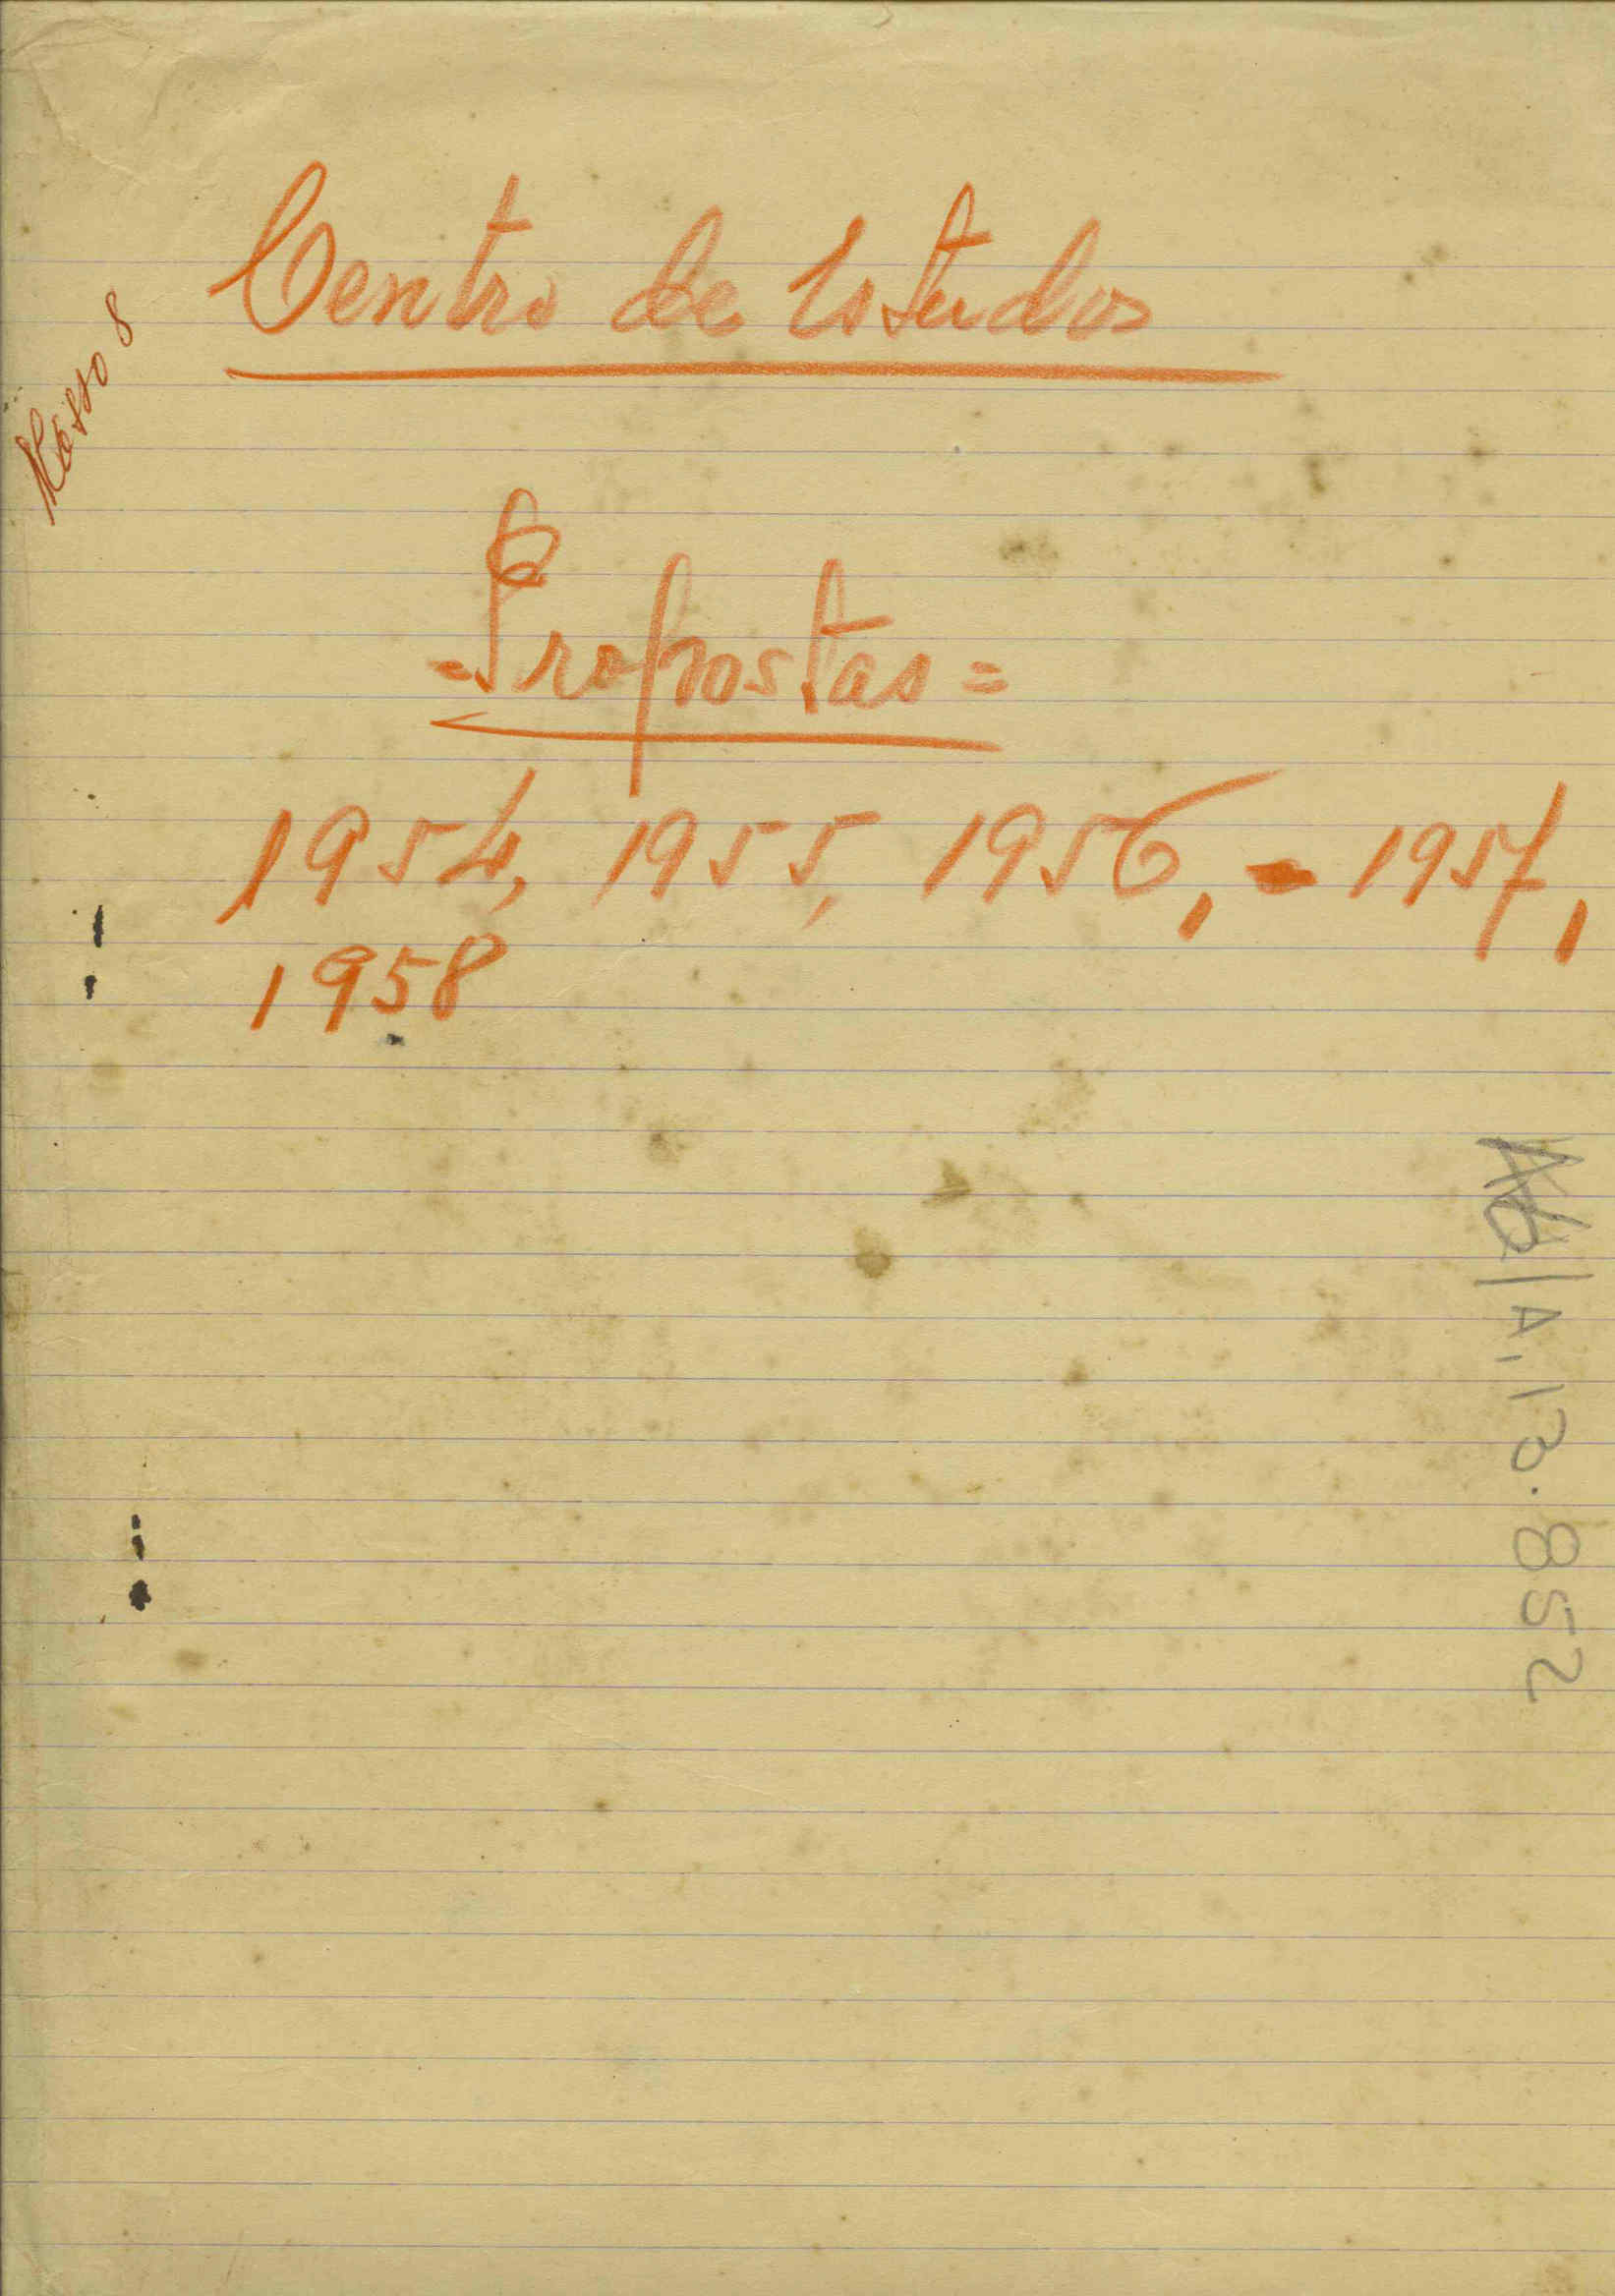 Centro de Estudos
Masso 8
=Propostas=
1954, 1955, 1956, - 1957,
1958
A, 13.852